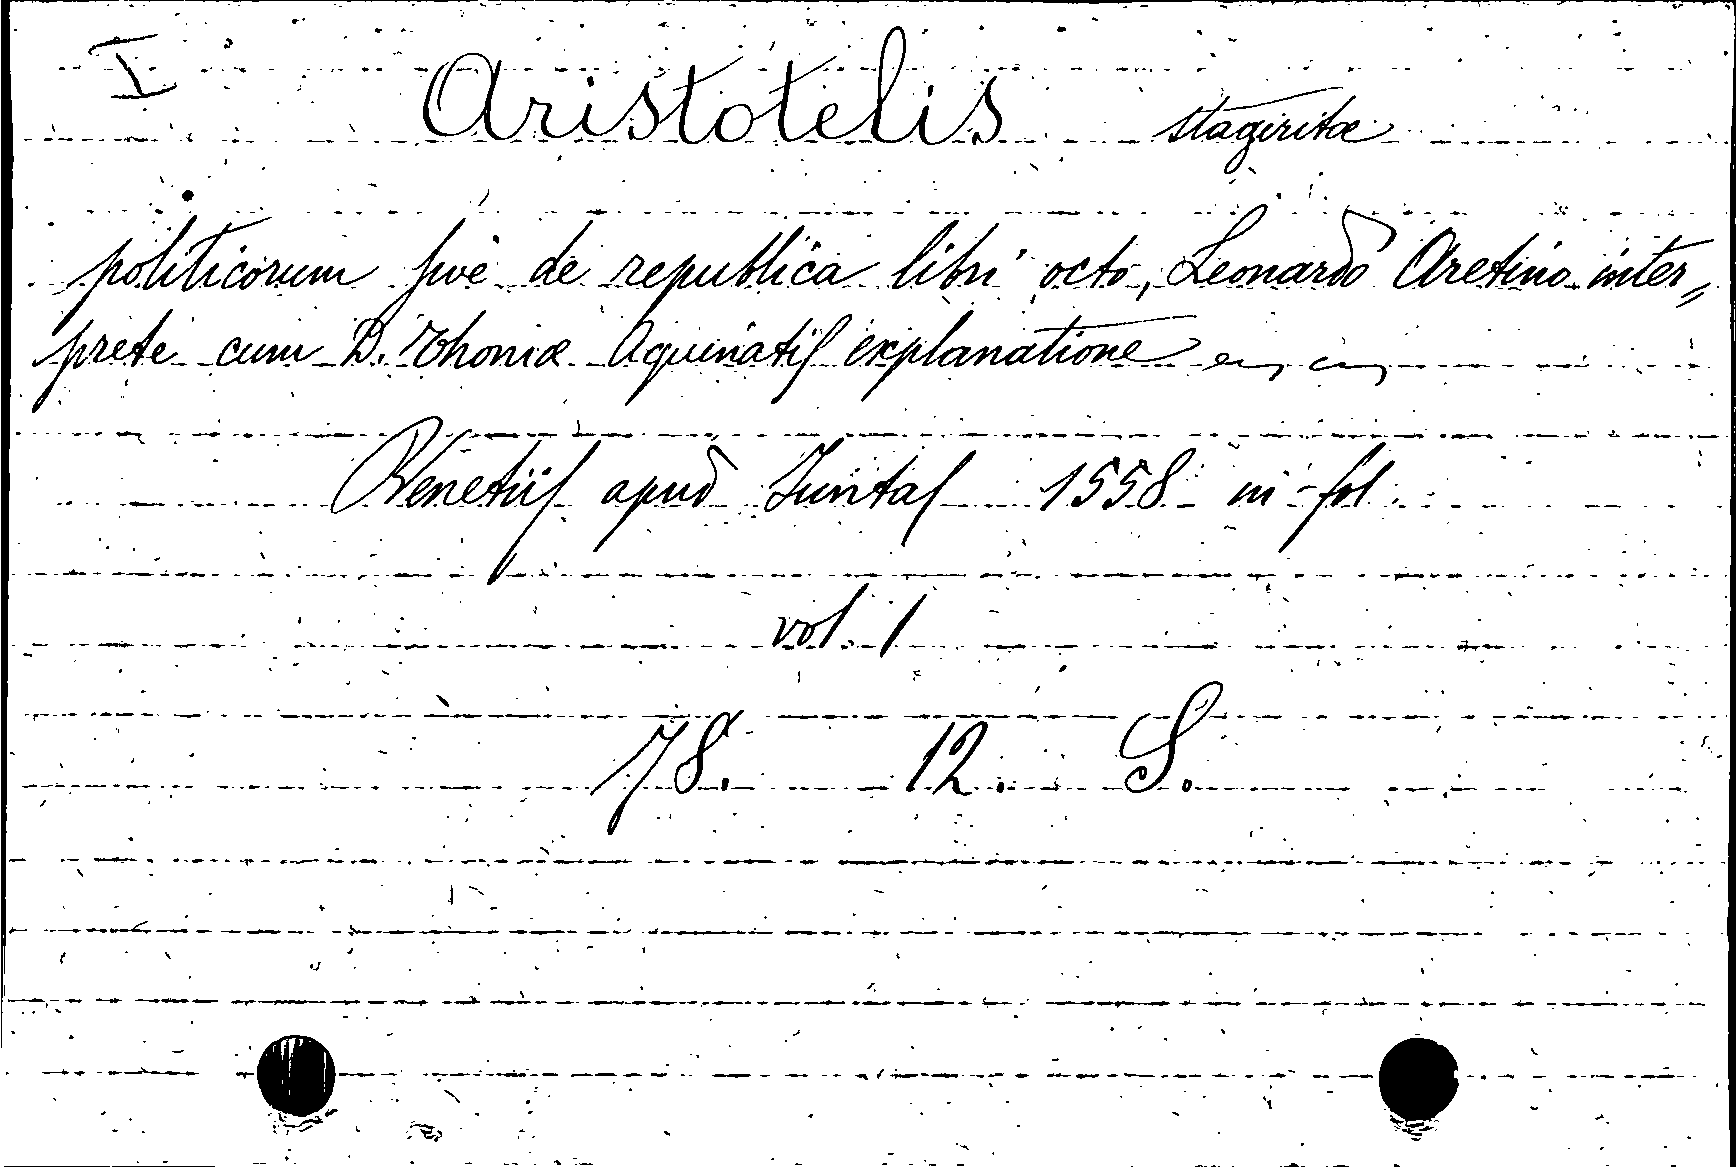 I Aristotelis stagiritæ
politicorum sive de republica libri octo, Leonardo Aretino inter„
prete cum D. Thomæ Aquinatis explanatione
Venetiis apud Juntas 1558 in-fol.
vol. 1
78. 12. S.